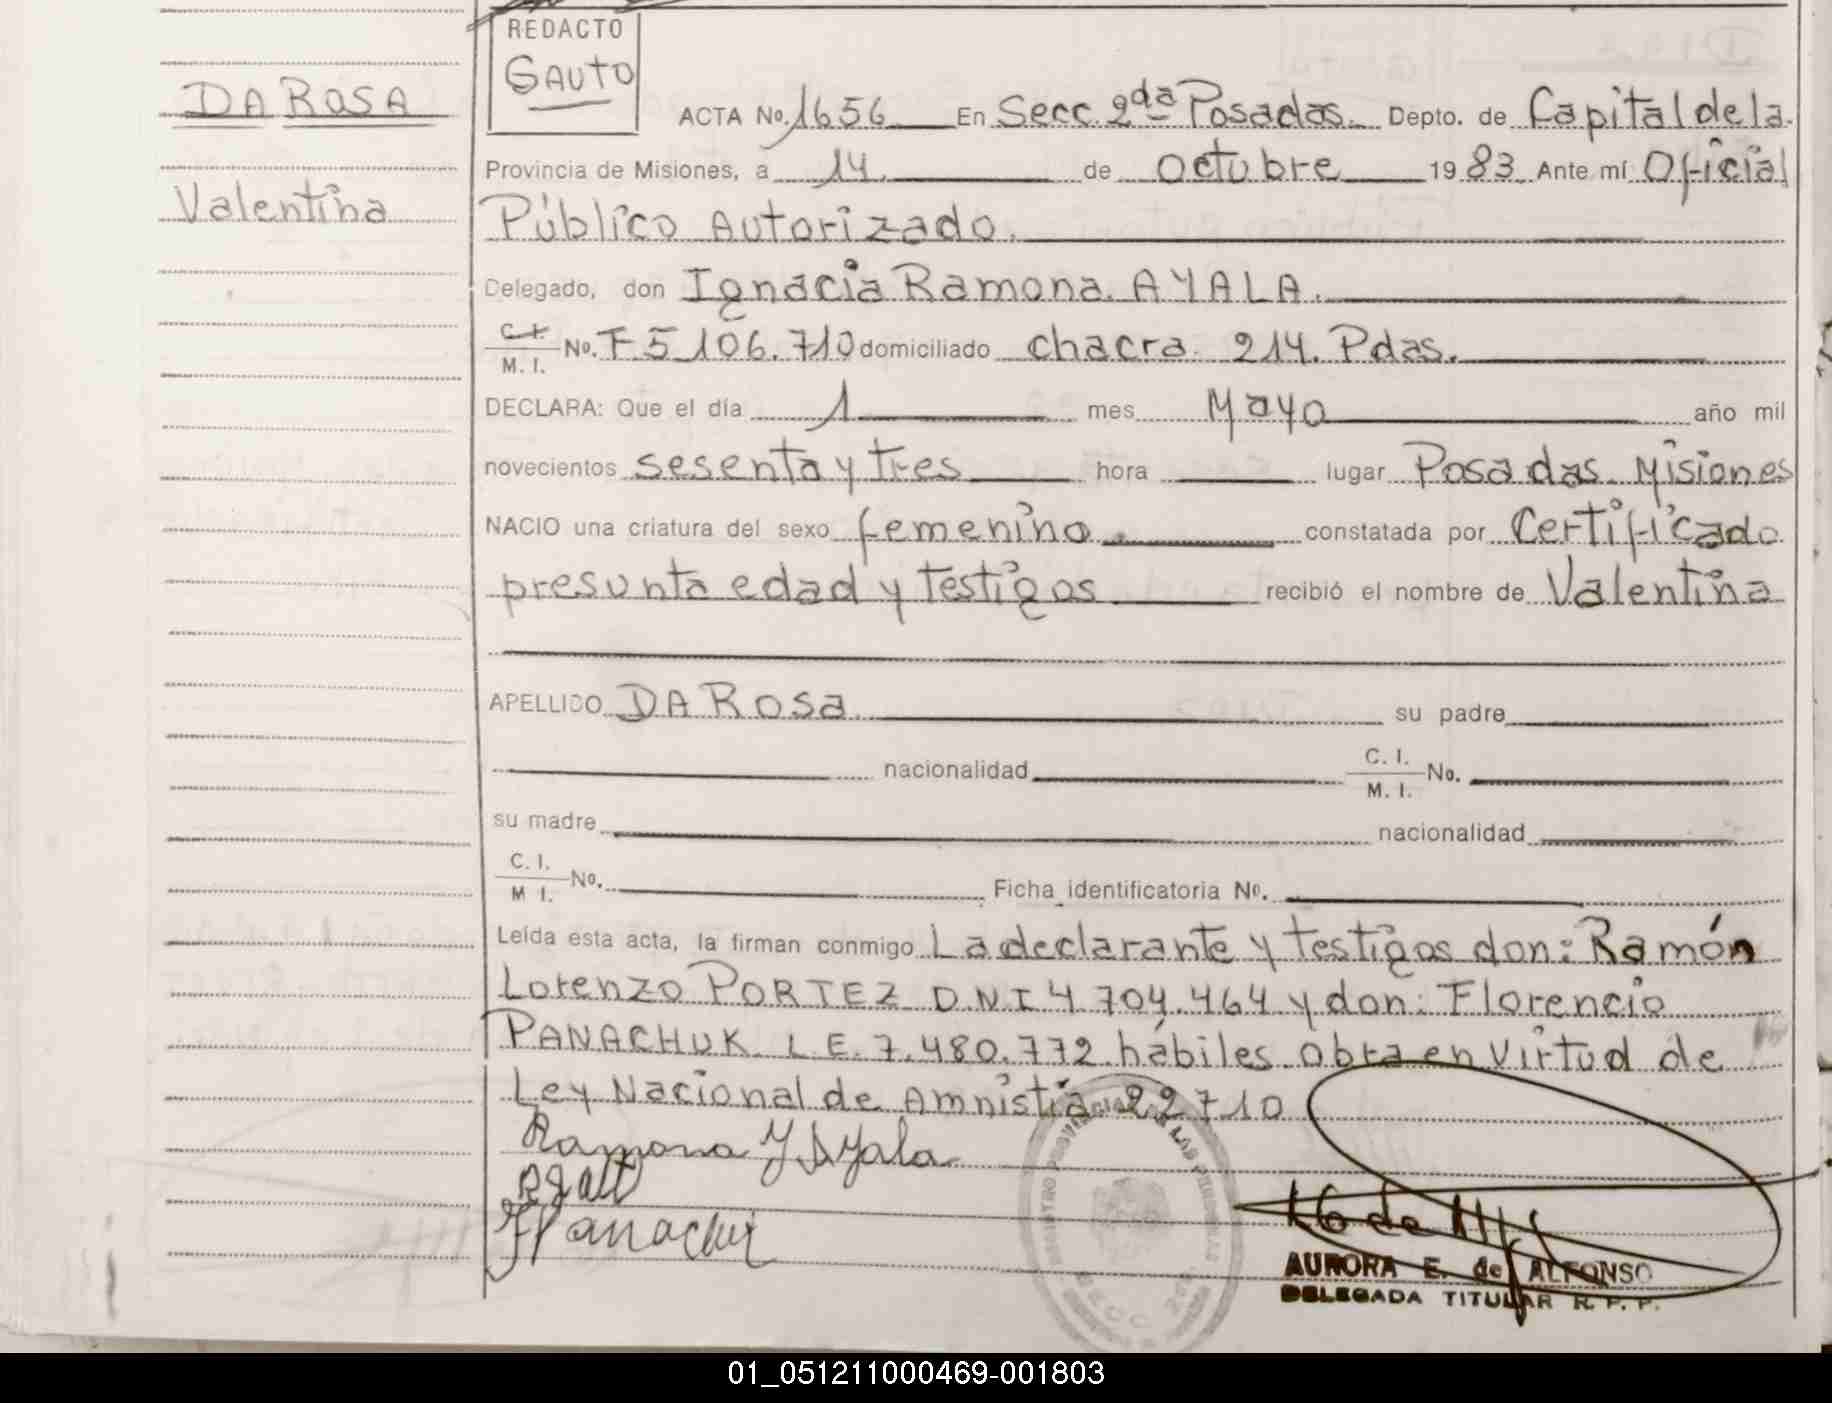 REDACTO
GAUTO
DA ROSA
Valentina
ACTA No. 1656 En Secc. 2da Posadas. Depto. de Capital de la
Provincia de Misiones, a 14. de octubre 1983 Ante mí Oficial
Público Autorizado.
Delegado, don Ignacia Ramona AYALA.
C.I.
M. I. No. F 5.106.710 domiciliado chacra 214. Pdas.
DECLARA: Que el día 1 mes Mayo año mil
novecientos sesenta y tres hora lugar Posadas Misiones
NACIO una criatura del sexo femenino. constatada por Certificado
presunta edad y testigos recibió el nombre de Valentina
APELLIDO DA ROSA su padre
nacionalidad C. I. M. I. No.
su madre nacionalidad
C. I. M I. No. Ficha identificatoria No.
Leída esta acta, la firman conmigo La declarante y testigos don: Ramón
Lorenzo PORTEZ D.N.I 4.704.464 y don: Florencio
PANACHUK L.E. 7.480.772 hábiles. obra en virtud de
Ley Nacional de Amnistía 22710
Ramona Y Ayala
AURORA E. de ALFONSO
DELEGADA TITULAR R. P. P.
REGISTRO PROVINCIAL DE LAS PERSONAS
SECC 2da
01_051211000469-001803